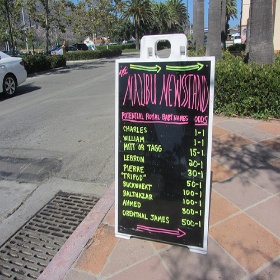 THE
MALIBU NEWSTAND
POTENTIAL ROYAL BABY NAMES ODDS
CHARLES 1-1
WILLIAM 1-1
MITT OR TAGG 15-1
LEBRON 20-1
PIERRE 30-1
"TRIPOD"
BUCKWHEAT 50-1
BALTHAZAR 100-1
AHMED 300-1
ORENTHAL JAMES 500-1